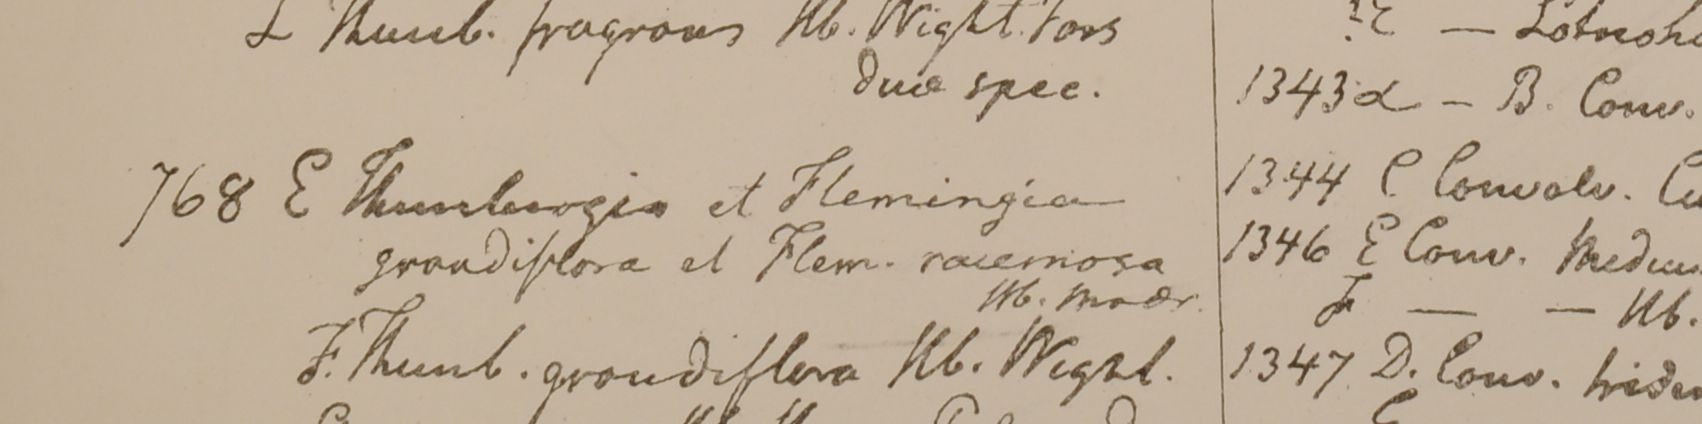 L Thunb. fragrans Hb. Wight. fors
duæ spec.
768 E Thunbergia et Flemingia
grandiflora et Flem. racemosa
Hb. Madr.
F. Thunb. grandiflora Hb. Wight.
1343 α – B. Conv.
1344 C Convolv.
1346 E Conv.
F — — Hb.
1347 D. Conv.